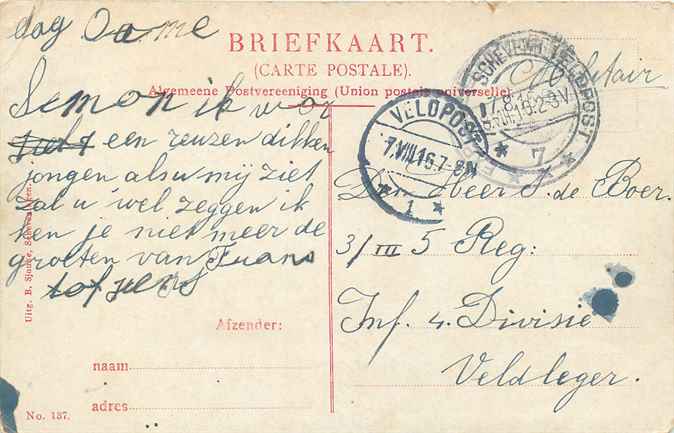 dag Oome
BRIEFKAART.
(CARTE POSTALE).
Algemeene Postvereeniging (Union postale universelle).
Militair
SCHEVENINGEN
VELDPOST
7
VELDPOST
7.VIII.16.7-8N
1
Semon ik wor
een reuzen dikken
jongen als u mij ziet
zal u wel zeggen ik
ken je niet meer de
groeten van Frans
tot ziens
Den Heer S. de Boer.
3/III 5 Reg:
Inf. 4. Divisie
Veldleger.
Afzender:
naam
adres
No. 137.
Uitg. B. Sjouke, Scheveningen.